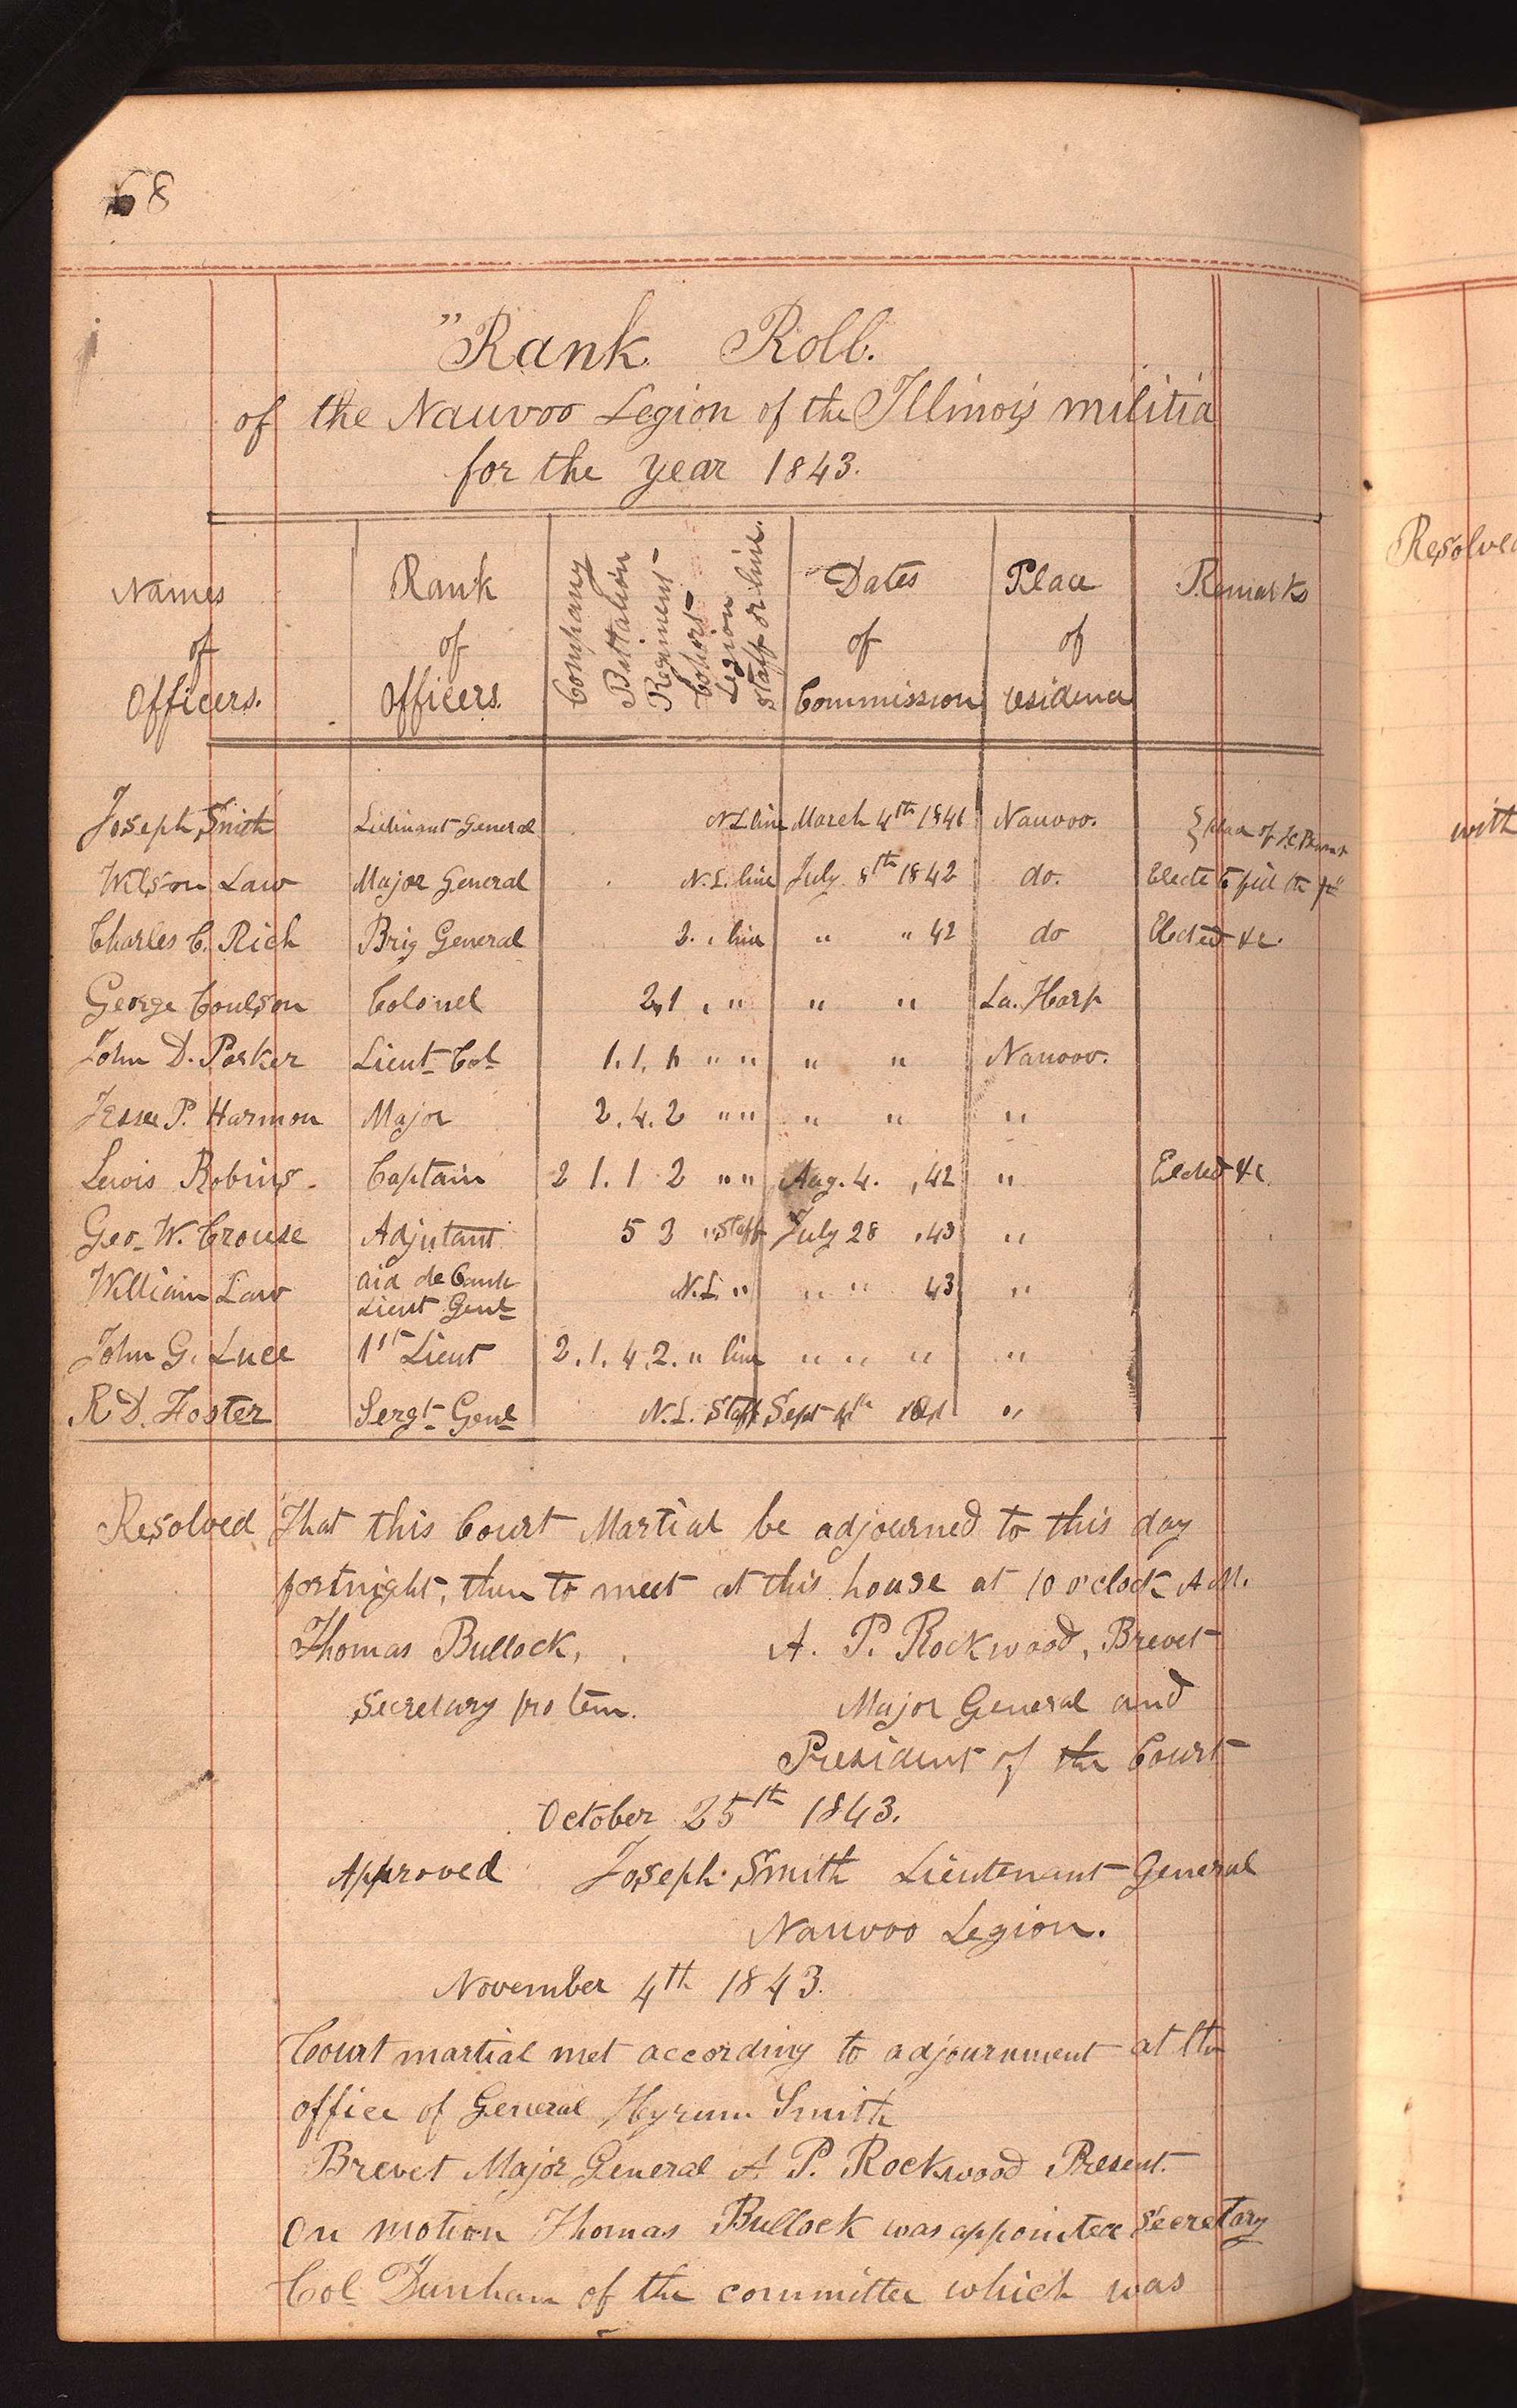 68
"Rank Roll.
of the Nauvoo Legion of the Illinois militia
for the year 1843.
Names of Officers. | Rank of Officers. | Company Battalion Regiment Cohort Legion staff or line. | Dates of Commission | Place of residence | Remarks
Joseph Smith | Lieutinant General | N L line | March 4th 1841 | Nauvoo. | place of J.C. Bennet
Wilson Law | Major General | N. L. line | July 8th 1842 | do. | Elected to fill the
Charles C. Rich | Brig General | 2. " line | " " 42 | do | Elected &c.
George Coulson | Colonel | 2, 1 " " | " " | La. Harp
John D. Parker | Lieut- Col | 1. 1. 1 " " | " " | Nauvoo.
Jesse P. Harmon | Major | 2. 4. 2 " " | " " | "
Lewis Robins | Captain | 2 1. 1 2 " " | Aug. 4. , 42 | " | Elected &c.
Geo- W. Crouse | Adjutant | 5 2 " Staff | July 28 , 43 | "
William Law | aid de Camp Lieut Genl | N. L. " | " " 43 | "
John G. Luce | 1st Lieut | 2. 1. 4. 2. " line | " " " | "
R D. Foster | Sergt- Genl | N. L. Staff | Sept | "
Resolved That this Court Martial be adjourned to this day
fortnight, then to meet at this house at 10 o'clock A M.
Thomas Bullock, A. P. Rockwood, Brevet
Secretary pro tem. Major General and
President of the Court
October 25th 1843.
Approved Joseph Smith Lieutenant General
Nauvoo Legion.
November 4th 1843.
Court martial met according to adjournment at the
office of General Hyrum Smith
Brevet Major General A P. Rockwood Present.
On motion Thomas Bullock was appointed Secretary
Col Dunham of the committee which was
Resolved
with